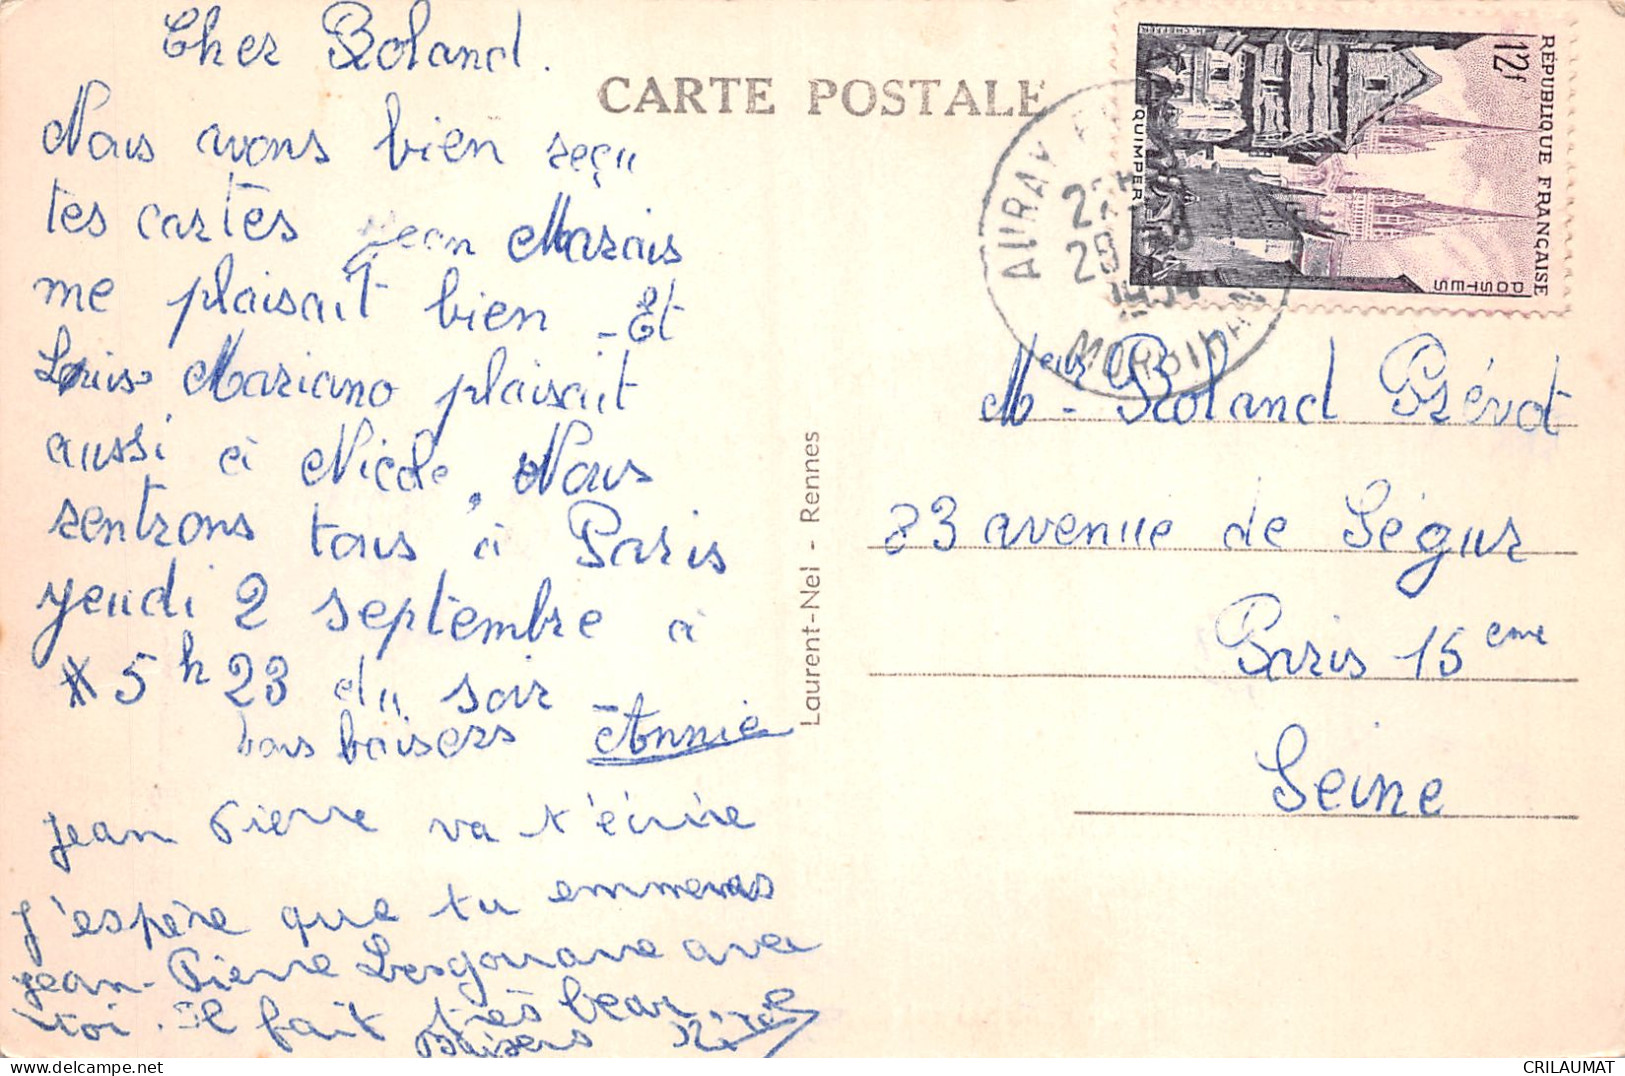 Cher Roland.
Nous avons bien reçu
tes cartes Jean Marais
me plaisait bien - Et
Louis Mariano plaisait
aussi à Nicole. Nous
rentrons tous à Paris
jeudi 2 septembre à
5h 23 du soir -
bons baisers Annie
jean Pierre va t'écrire
j'espère que tu emmeneras
jean-Pierre avec
toi. Il fait très beau
Baisers Nicole
CARTE POSTALE
Laurent-Nel - Rennes
RÉPUBLIQUE FRANÇAISE
12f
POSTES
QUIMPER
AURAY
28
1954
MORBIHAN
Meur Roland Prévot
83 avenue de Ségur
Paris 15eme
Seine
CRILAUMAT